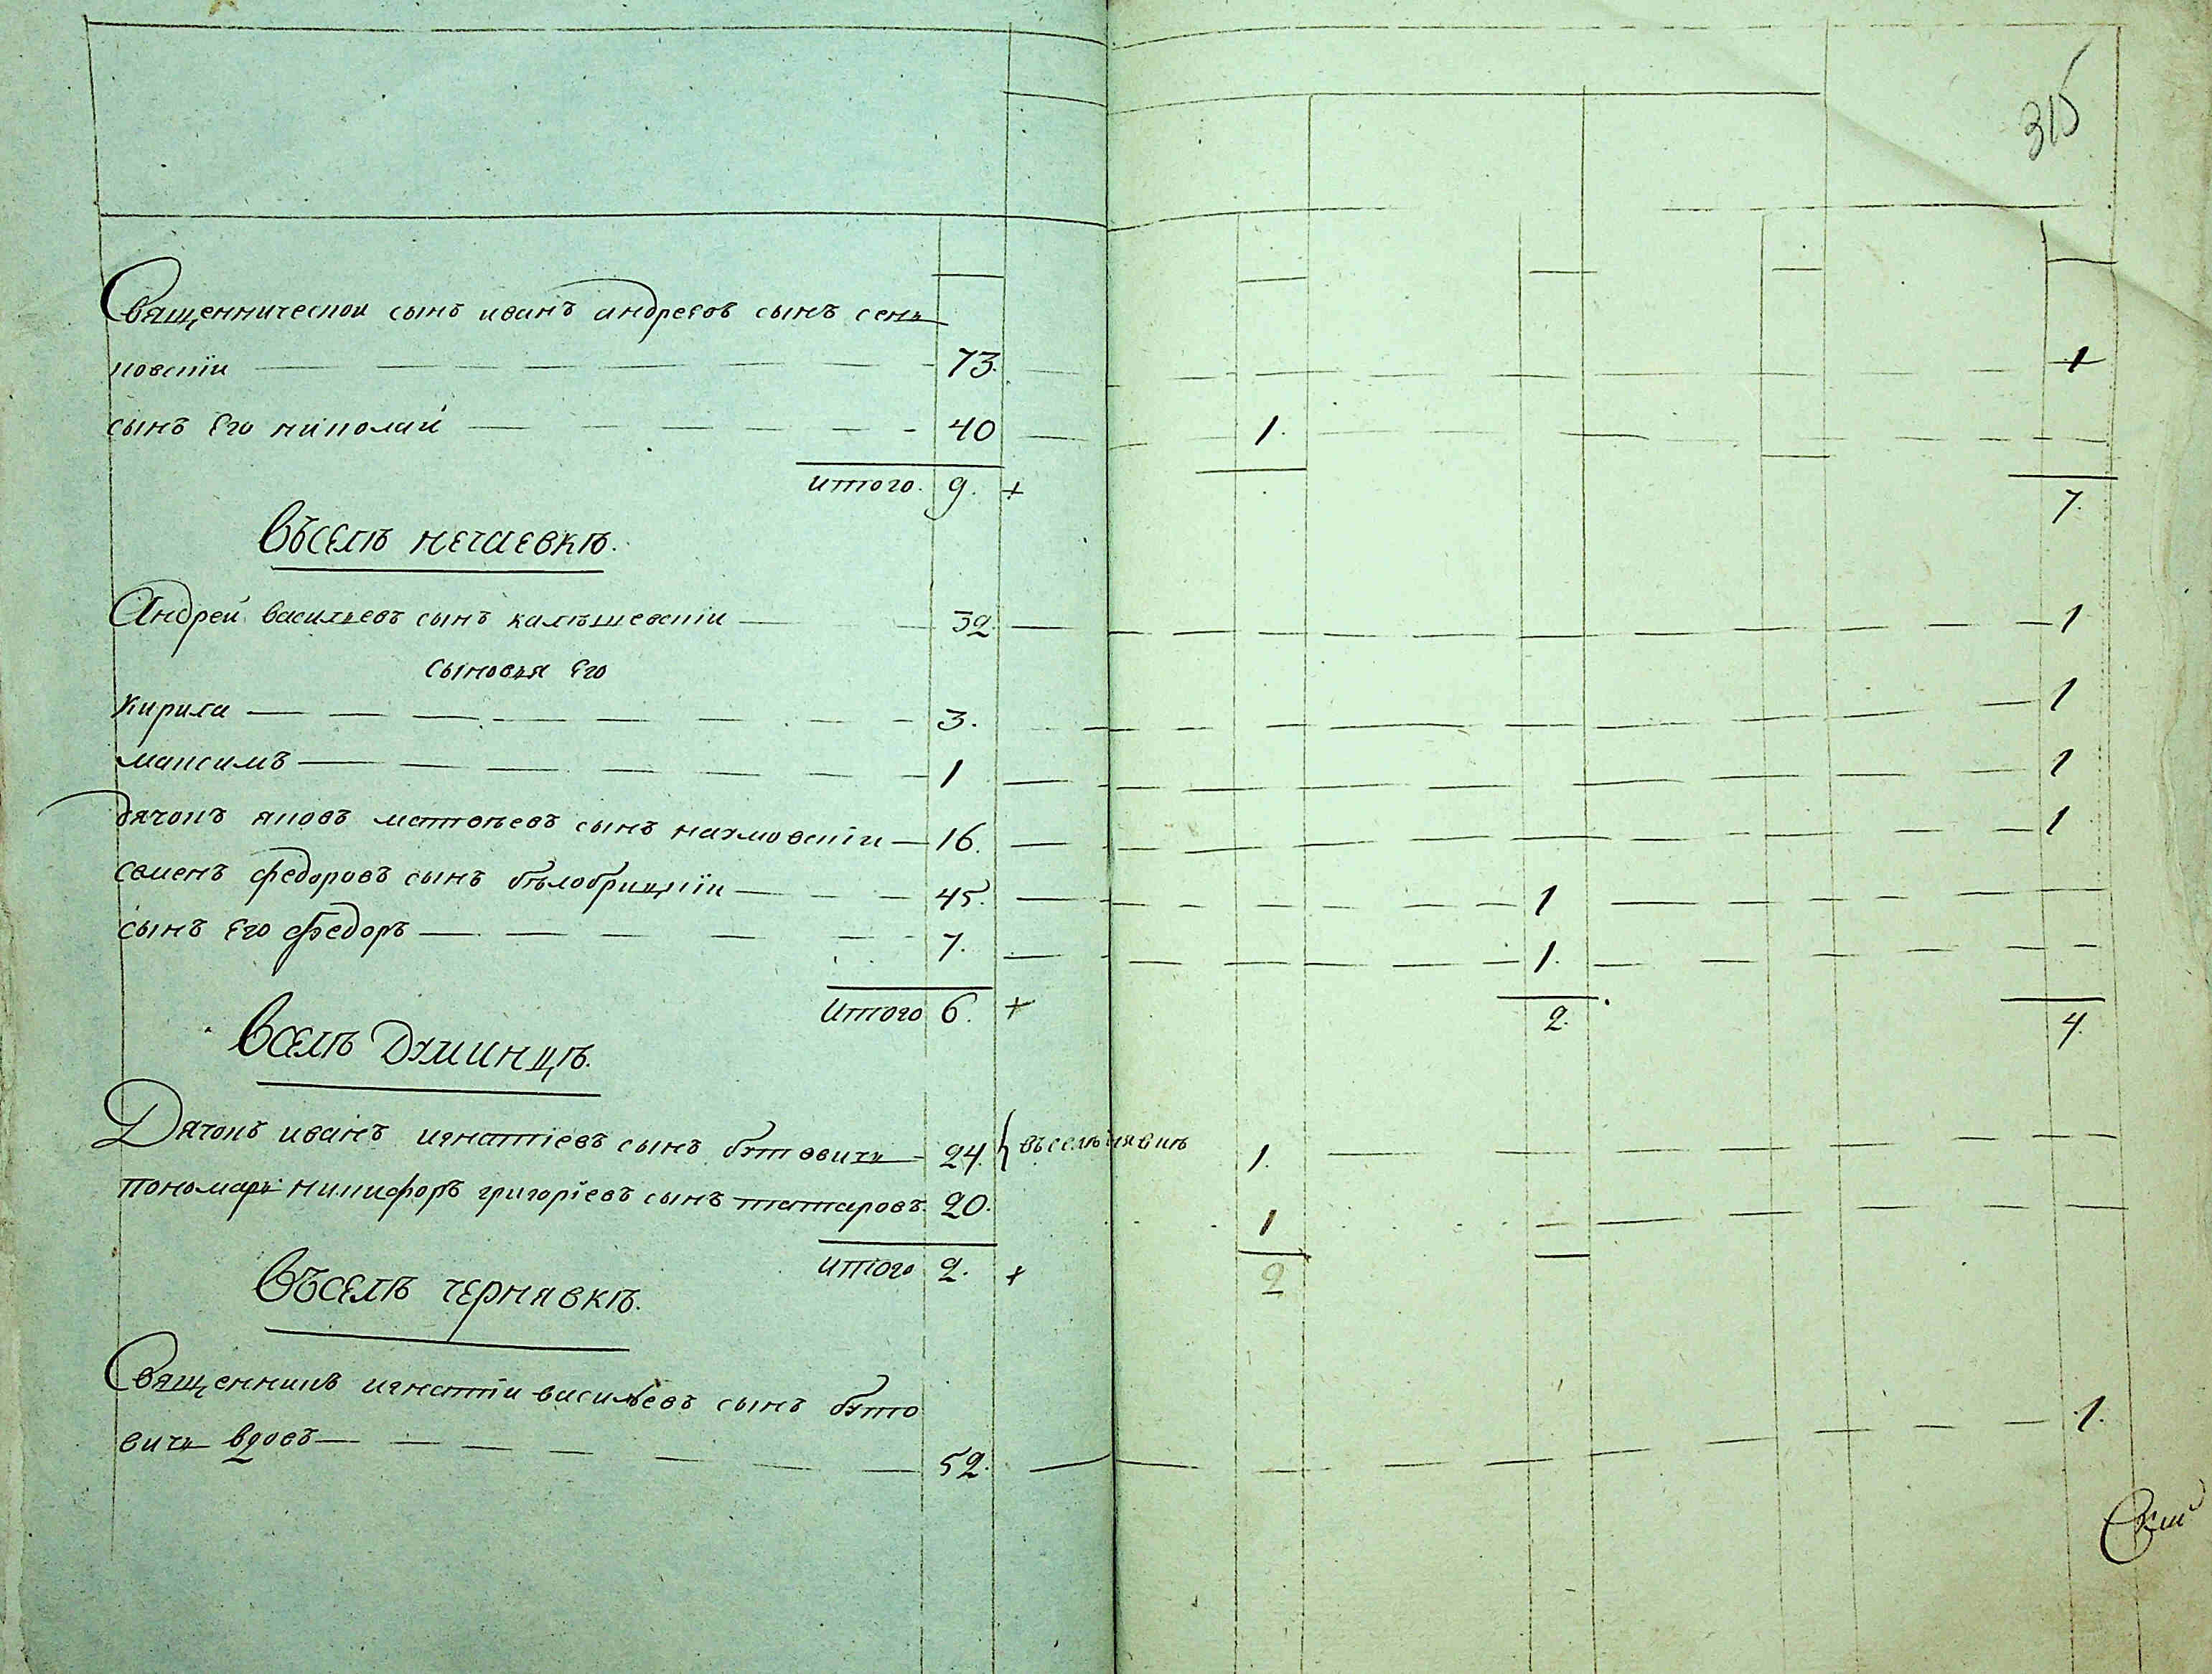 315
Священническои сынъ иванъ андреевъ сынъ сень
ковскіи 73. 1
сынъ его николаи 40 1.
итого. 9. + 7.
Въселѣ нечаевкѣ.
Андреи васильевъ сынъ калѣшевскіи 32. 1
сыновья его
кирила 3. 1
максимъ 1 1
дячокъ яковъ матвѣевъ сынъ нахмовскіи 16. 1
семенъ федоровъ сынъ бѣлобрицкіи 45. 1
сынъ его федоръ 7. 1.
Итого 6. + 2. 4.
Вселѣ Думинцѣ.
Дячокъ иванъ игнатіевъ сынъ бутовичь 24. въселѣ 1.
пономарь никифоръ григоріевъ сынъ татаровъ. 20. 1
итого 2. + 2
Въселѣ чернявкѣ.
Священникъ игнатіи васильевъ сынъ буто
вичь вдовъ 52. 1.